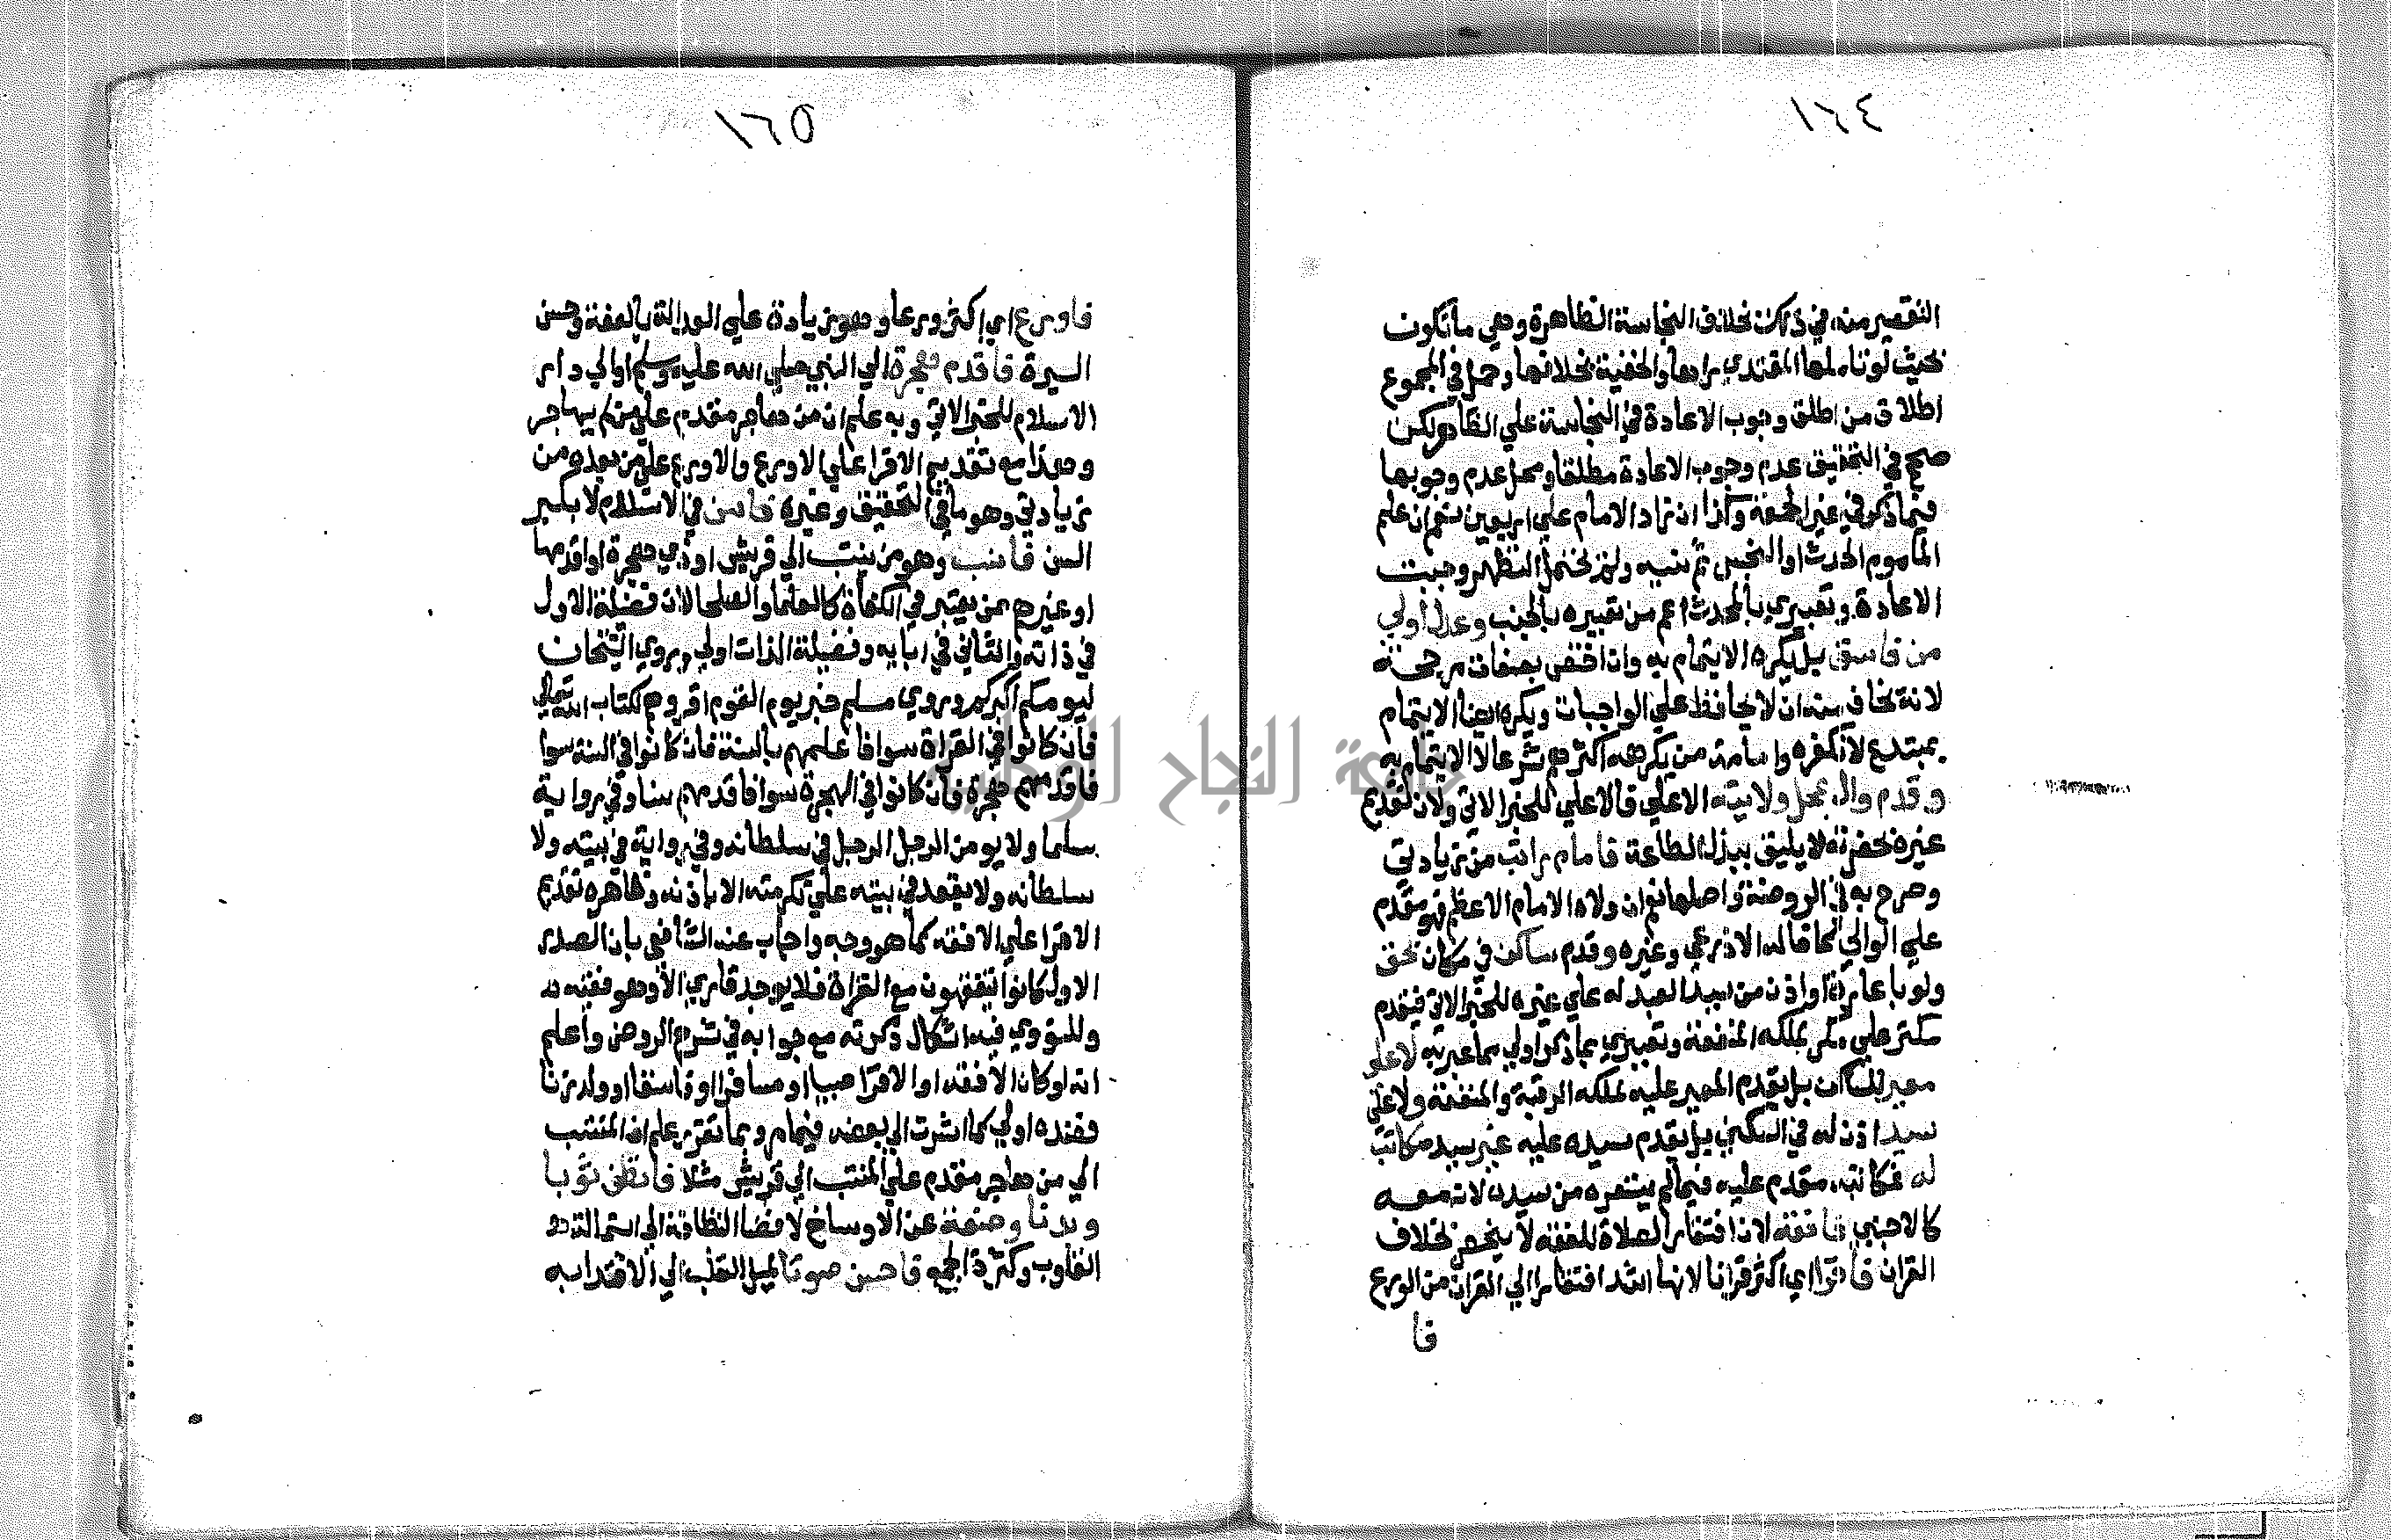 ١٦٤
التقصير منه في ذلك بخلاف النجاسة الظاهرة وهي ما تكون
بحيث لو تاملها المقتدي راها والخفية بخلافها وحمل في المجموع
اطلاق من اطلق وجوب الاعادة في النجاسة علي الظاهر لكن
صحح في التحقيق عدم وجوب الاعادة مطلقا ومحل عدم وجوبها
فيما ذكر في غير الجمعة وكذا ان زاد الامام علي اربعين نعم ان علم
الماموم الحدث او النجس ثم نسيه ولم يحتمل التطهر وجبت
الاعادة وتعبيري بالمحدث اعم من تعبيره بالجنب وعدل اولي
من فاسق بل يكره الايتمام به وان اختص بصفات مرجحته
لانه يخاف منه ان لا يحافظ علي الواجبات ويكره ايضا الايتمام
بمبتدع لا نكفره وامامة من يكرهه اكثرهم شرعا لا الايتمام به
وقدم وال بمحل ولايته الاعلي فالاعلي للخبر الاتي ولان تقديم
غيره بحضرته لا يليق ببذل الطاعة فامام راتب من زيادتي
وصرح به في الروضة واصلها نعم ان ولاه الامام الاعظم فهو مقدم
علي الوالي كما قاله الاذرعي وغيره وقدم ساكن في مكان بحق
ولو باعارة او اذن من سيد العبد له علي غيره للخبر الاتي فيقدم
مكتر علي مكر لملكه المنفعة وتعبيري بما ذكر اولي مما عبر به لا علي
معير للساكن بل يقدم المعير عليه لملكه الرقبة والمنفعة ولا علي
سيد اذن له في السكني بل يقدم سيده عليه غير سيد مكاتب
له فمكاتبه مقدم عليه فيما لم يستعره من سيده لانه معه
كالاجنبي فافقه لان افتقار الصلاة للفقه لا ينحصر بخلاف
القران فاقرا اي اكثر قرانا لانها اشد افتقارا الي القران من الورع
فا
١٦٥
فاورع اي اكثر ورعا وهو زيادة علي العدالة بالعفة وحسن
السيرة فاقدم هجرة الي النبي صلي الله عليه وسلم او الي دار
الاسلام للخبر الاتي وبه علم ان من هاجر مقدم علي من لم يهاجر
وهذا مع تقديم الاقرا علي الاورع والاورع علي من بعده من
زيادتي وهو ما في التحقيق وغيره فاسن في الاسلام لا بكبر
السن فانسب وهو من ينتسب الي قريش او ذي هجرة او اقدمها
او غيرهم ممن يعتبر في الكفاة كالعلما والصلحا لان فضيلة الاول
في ذاته والثاني في ابايه وفضيلة الذات اولي وروي الشيخان
ليومكم اكبركم وروي مسلم خبر يوم القوم اقروهم لكتاب الله تعالي
فان كانوا في القراة سوا فاعلمهم بالسنة فان كانوا في السنة سوا
فاقدمهم هجرة فان كانوا في الهجرة سوا فاقدمهم سنا وفي رواية
سلما ولا يومن الرجل الرجل في سلطانه وفي رواية في بيته ولا
سلطانه ولا يقعد في بيته علي تكرمته الا باذنه وظاهره تقديم
الاقرا علي الافقه كما هو وجه واجاب عنه الشافعي بان الصدر
الاول كانوا يتفقهون مع القراة فلا يوجد قاري الا وهو فقيه
وللنووي فيه اشكال ذكرته مع جوابه في شرح الروض واعلم
انه لو كان الافقه او الاقرا صبيا او مسافرا او فاسقا او ولد زنا
فضده اولي كما اشرت الي بعضه فيما مر وبما تقرر علم ان المنتسب
الي من هاجر مقدم علي المنتسب الي قريش مثلا فانظف ثوبا
وبدنا وصنعة عن الاوساخ لافضا النظافة الي استمالة
القلوب وكثرة الجمع فاحسن صوتا لميل القلب الي الاقتدا به
جامعة النجاح الوطنية